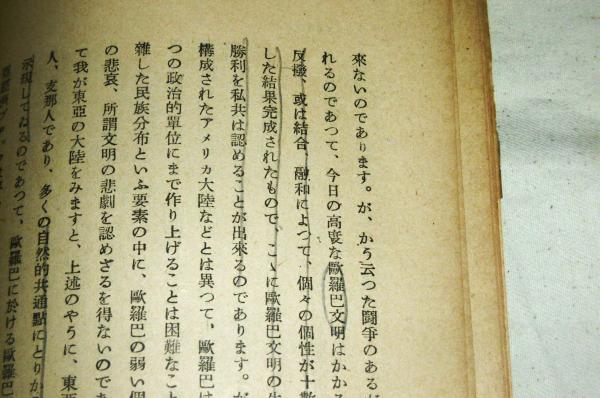 來ないのであります。が、かう云つた鬪爭のあるが
れるのであつて、今日の高度な歐羅巴文明はかかる
反撥、或は結合、融和によつて、個々の個性が十數
した結果完成されたもので、こゝに歐羅巴文明の
勝利を私共は認めることが出來るのであります。が
構成されたアメリカ大陸などとは異つて、歐羅巴は
つの政治的單位にまで作り上げることは困難なこと
雜した民族分布といふ要素の中に、歐羅巴の弱い個
の悲哀、所謂文明の悲劇を認めざるを得ないのであ
て我が東亞の大陸をみますと、上述のやうに、東亞
人、支那人であり、多くの自然的共通點にとりか
示現してゐるのであつて、歐羅巴に於ける歐羅巴